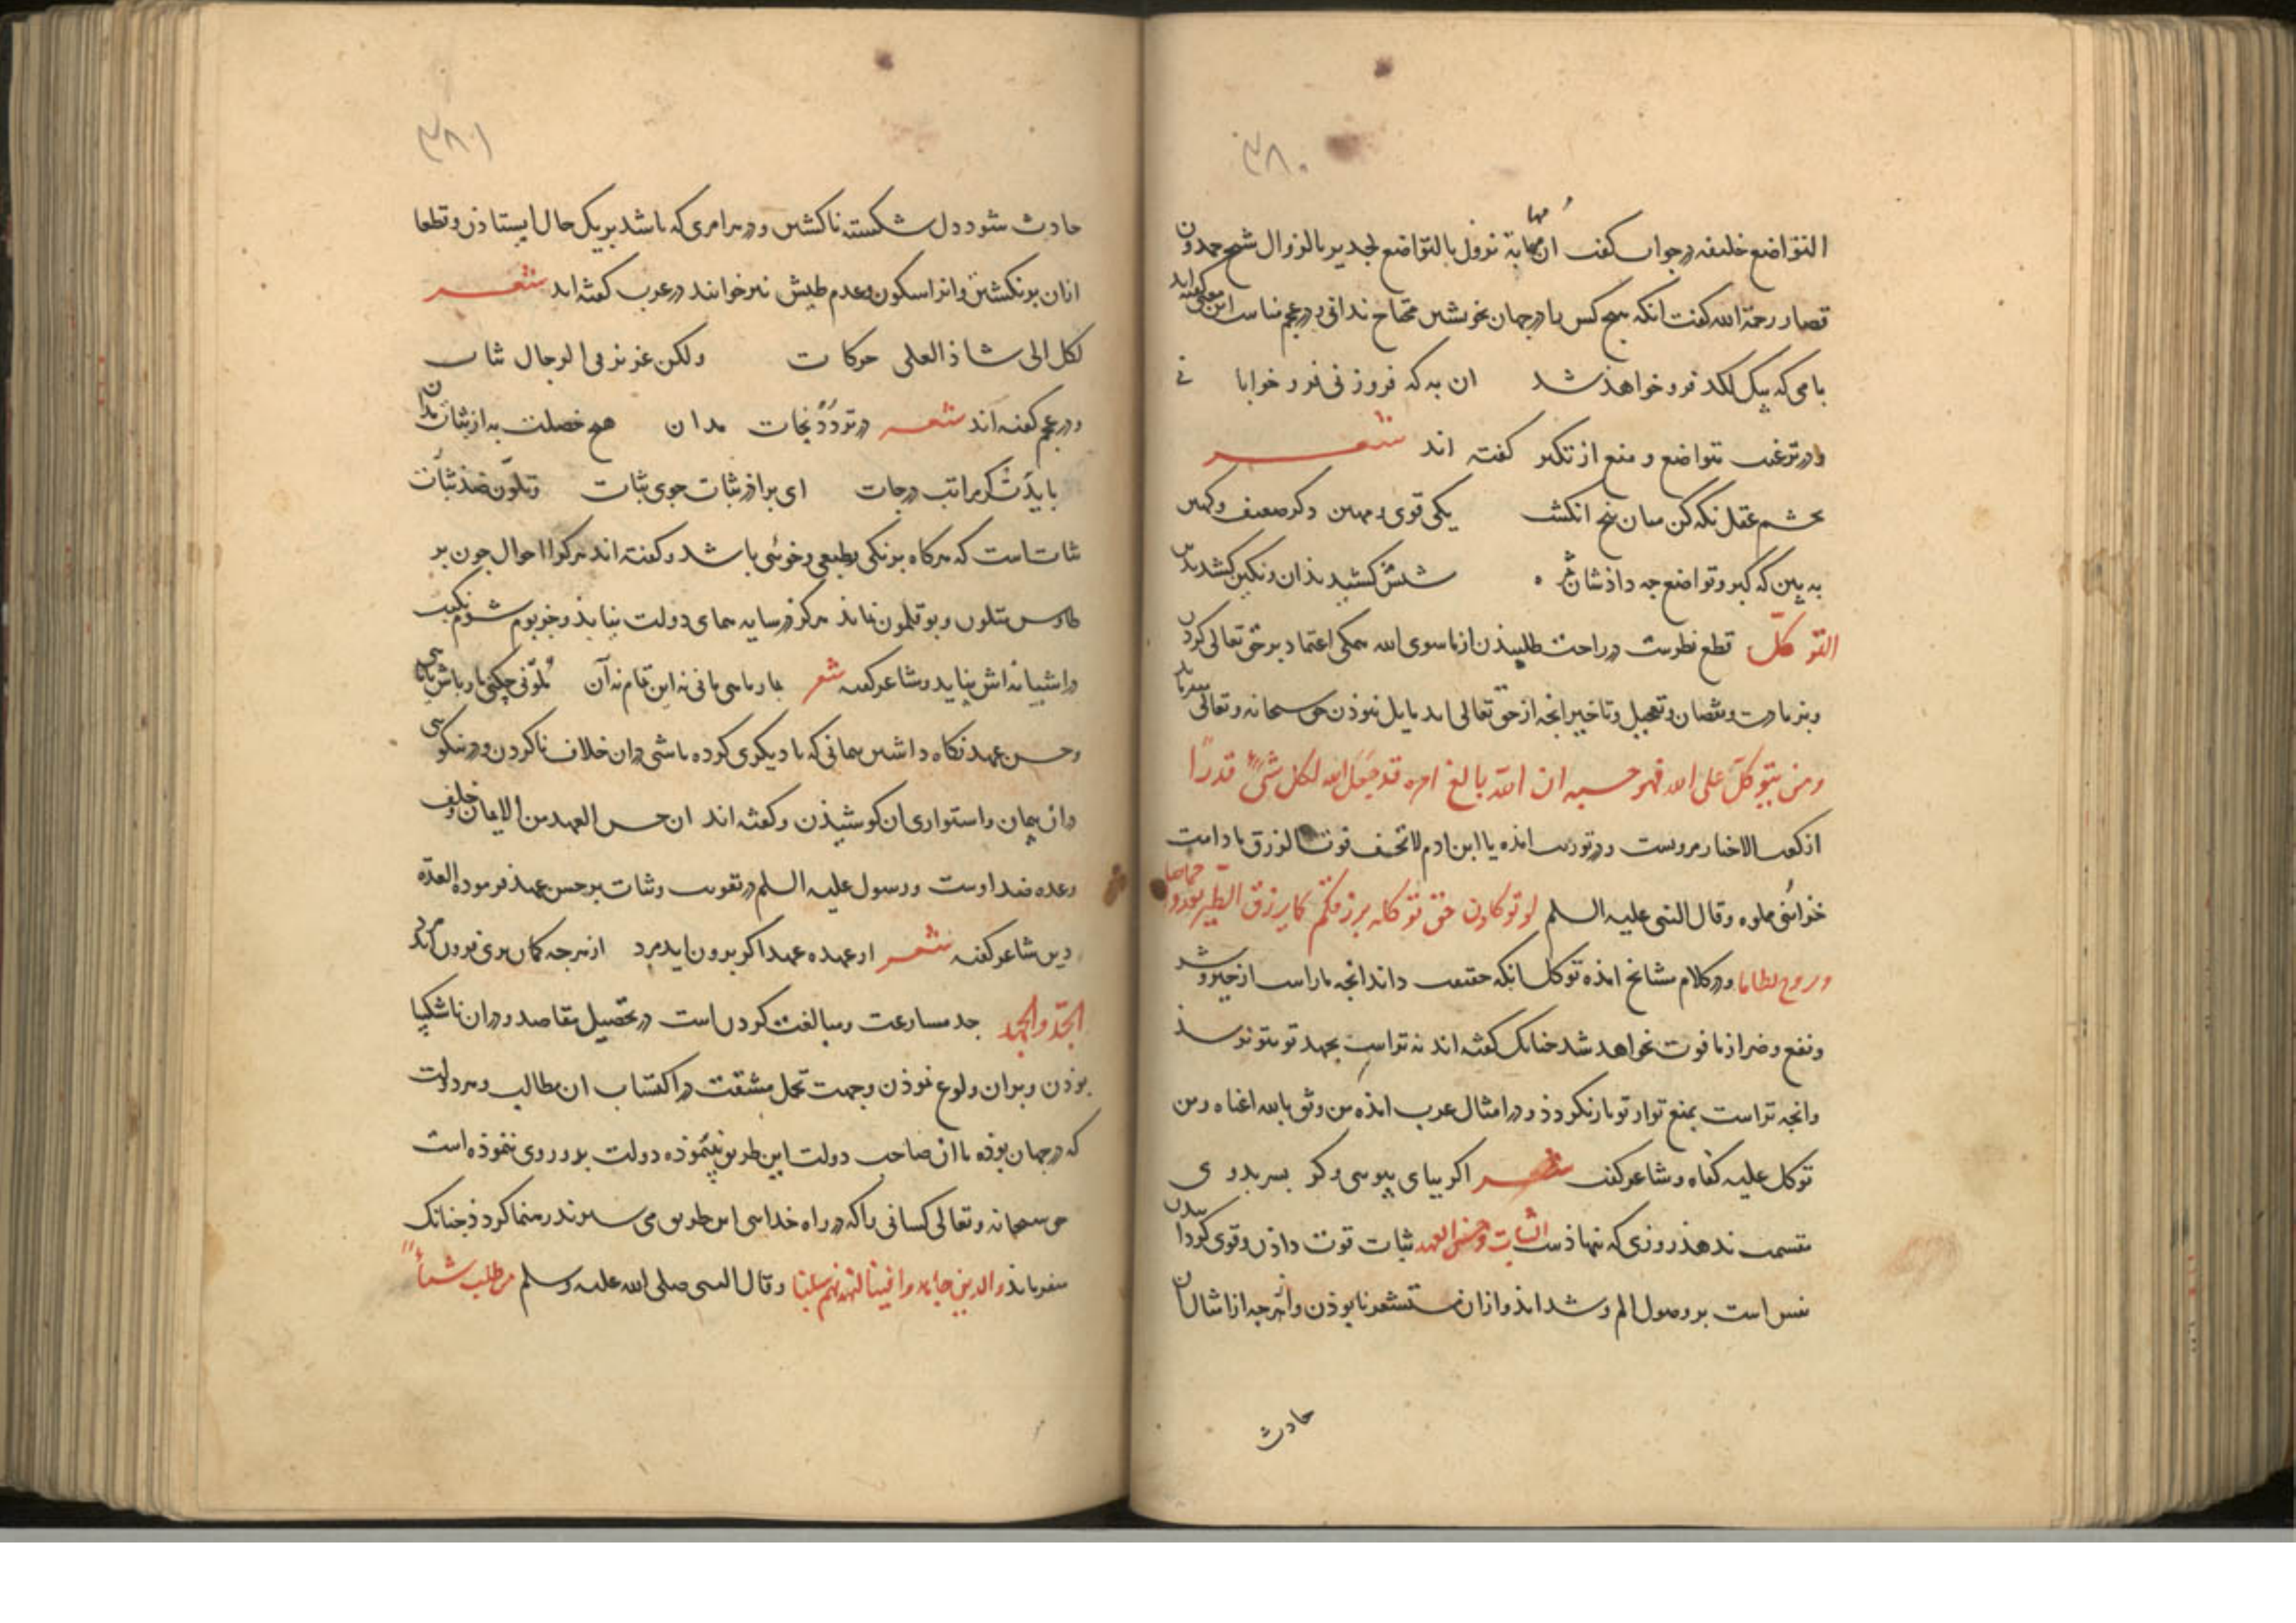 ٣٨٠
التواضع خلیفه در جواب کفت ان مهابة تزول بالتواضع لجدیر بالزوال شیخ حمدون
قصار رحمة الله کفت انکه هیچ کس را در جهان بخویشتن محتاج ندانی و در عجم مناسب این معنی کفته اند
بامی که بیک لکد فرو خواهذ شد ان به که فروزنی فرو خوابانی
و در ترغیب بتواضع و منع از تکبر کفته اند شعر
بچشم عقل نکه کن میان پنج انکشت یکی قوی و مهین و دکر ضعیف و کهین
به بین که کبر و تواضع چه داذشان
التوکل قطع نظرست و راحت طلبیذن از ماسوی الله همکی اعتماد بر حق تعالی کردن
و بزیادت و نقصان و تعجیل و تاخیر انچه از حق تعالی اید مایل نبوذن حق سبحانه و تعالی میفرماید
ومن یتوکل علی الله فهو حسبه ان الله بالغ امره قد جعل الله لکل شیء قدرا
از کعب الاخبار مرویست و در توریت امذه یا ابن ادم لا تخف فوت الرزق مادامت
خزائنی مملوه وقال النبی علیه السلم لو توکلون حق توکله برزقکم کما یرزق الطیر تغدوا خماصا
وروح بطانا و در کلام مشایخ امذه توکل انکه حقیقت داند انچه ماراست از خیر و شر
و نفع و ضر از ما فوت نخواهد شد چنانک کفته اند نه تراست بجهد تو بتو نرسذ
وانچه تراست بمنع تو از تو باز نکردذ و در امثال عرب امذه من وثق بالله اغناه و من
توکل علیه کفاه و شاعر کفت شعر اکر بپای بپوسی وکر بسر بدوی
مقسمت ندهذ روزی که ننهاذست الثبات و حسن العهد ثبات قوت داذن و قوی کردانیدن
نفس است بر وصول الم و شداید و ازان مستشعر نابوذن و انچه از امثال ان
حادث
٣٨١
حادث شود دل شکسته ناکشتن و در هر امری که باشد بر یک حال ایستاذن و قطعا
ازان برنکشتن و انرا سکون و عدم طیش نیز خوانند در عرب کفته اند شعر
لکل الی شاذ العلی حرکات ولکن عزیز فی الرجال ثبات
و در عجم کفته اند شعر در تردد نجات مدان هیچ خصلت به از ثبات مدان
بایدت کر مراتب درجات ای براذر ثبات جوی ثبات و تلون ضد ثبات
ثبات است که هرکاه برنکی و طبعی و خوئی باشد و کفته اند هرکرا احوال چون بر
طاوس متلون و بوقلمون نماند هرکز در سایه همای دولت نیایذ و جز بوم شوم نکبت
در اشیانه اش نیاید و شاعر کفته شعر مار ماهی مانی نه این تمام نه آن تلونی چکنی مار باش یا ماهی
و حسن عهد نکاه داشتن پیمانی که با دیکری کرده باشی و دران خلاف ناکردن و در نیکوی
و ان پیمان و استواری ان کوشیذن و کفته اند ان حسن العهد من الایمان و خلف
وعده ضد اوست و رسول علیه السلم در تقویت و ثبات بر حسن عهد فرموده العدة
دین شاعر کفته شعر از عهده عهد اکر برون اید مرد از هرچه کمان بری فزون اید مرد
الجد والجهد جد مسارعت و مبالغت کردن است در تحصیل مقاصد و دران ناشکیبا
بوذن و بران ولوع نموذن و جهد تحمل مشقت در اکتساب ان مطالب و هر دولت
که در جهان بوذه تا ان صاحب دولت این طریق نپیموذه دولت بدو روی ننموذه است
حق سبحانه و تعالی کسانی را که در راه خدای این طریق می سپرند رهنما کردذ چنانک
میفرماید والذین جاهدوا فینا لنهدینهم سبلنا وقال النبی صلی الله علیه وسلم من طلب شیأ